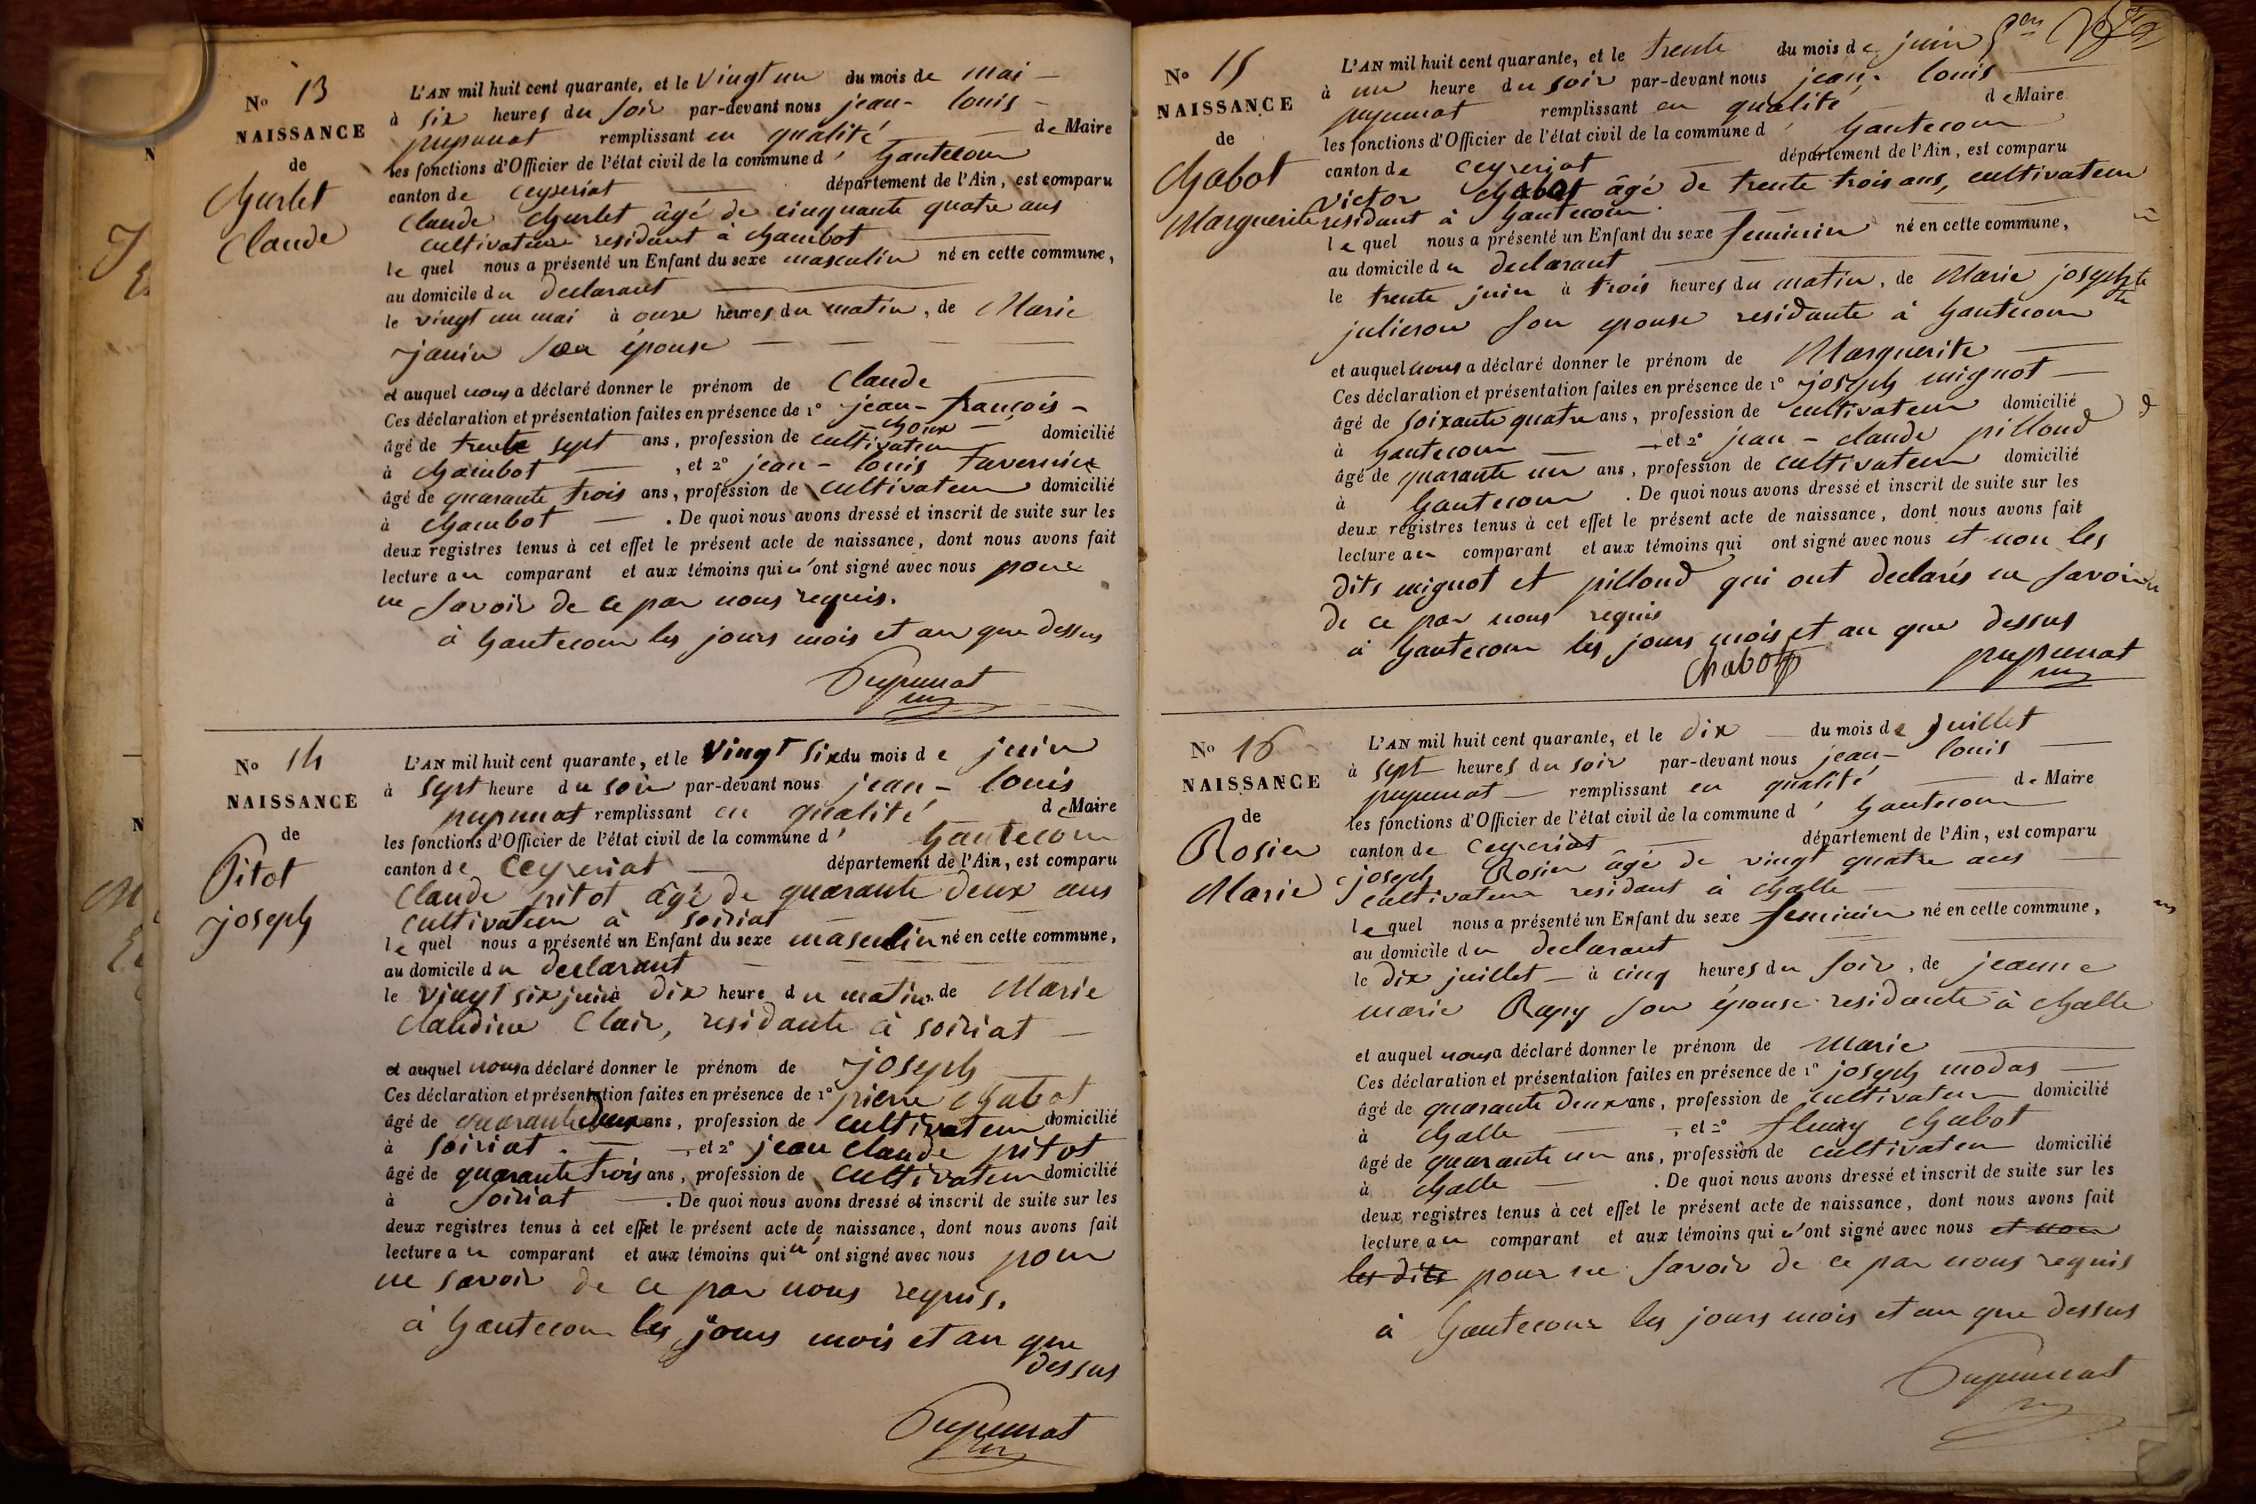 N° 13
NAISSANCE
de
Churlet
Claude
L'AN mil huit cent quarante, et le vingt un du mois de mai
à six heures du soir par-devant nous jean-louis
pupunat remplissant en qualité de Maire
les fonctions d'Officier de l'état civil de la commune d' hautecour
canton de Ceyseriat département de l'Ain, est comparu
Claude Churlet âgé de cinquante quatre ans
cultivateur residant à chambot
le quel nous a présenté un Enfant du sexe masculin né en cette commune,
au domicile du declarant
le vingt un mai à onze heures du matin, de Marie
janin son épouse
et auquel nous a déclaré donner le prénom de Claude
Ces déclaration et présentation faites en présence de 1° jean-françois
âgé de trente sept ans, profession de cultivateur domicilié
à chambot, et 2° jean-louis Tavernier
âgé de quarante trois ans, profession de cultivateur domicilié
à chambot. De quoi nous avons dressé et inscrit de suite sur les
deux registres tenus à cet effet le présent acte de naissance, dont nous avons fait
lecture au comparant et aux témoins qui n'ont signé avec nous pour
ne savoir de ce par nous requis.
à hautecour les jours mois et an que dessus
Pupunat
N° 14
NAISSANCE
de
Pitot
joseph
L'AN mil huit cent quarante, et le vingt six du mois de juin
à sept heure du soir par-devant nous jean-louis
pupunat remplissant en qualité de Maire
les fonctions d'Officier de l'état civil de la commune d' hautecour
canton de Ceyseriat département de l'Ain, est comparu
Claude pitot âgé de quarante deux ans
cultivateur à soiriat
le quel nous a présenté un Enfant du sexe masculin né en cette commune,
au domicile du declarant
le vingt six juin à dix heure du matin. de Marie
claudine Clair, residante à soiriat
et auquel nous a déclaré donner le prénom de joseph
Ces déclaration et présentation faites en présence de 1° pierre chabot
âgé de quarante deux ans, profession de cultivateur domicilié
à soiriat., et 2° jean claude pitot
âgé de quarante trois ans, profession de cultivateur domicilié
à soiriat. De quoi nous avons dressé et inscrit de suite sur les
deux registres tenus à cet effet le présent acte de naissance, dont nous avons fait
lecture au comparant et aux témoins qui n'ont signé avec nous pour
ne savoir de ce par nous requis.
à hautecour les jours mois et an que
dessus
Pupunat
N° 15
NAISSANCE
de
Chabot
Marguerite
L'AN mil huit cent quarante, et le trente du mois de juin
à un heure du soir par-devant nous jean-louis
pupunat remplissant en qualité de Maire
les fonctions d'Officier de l'état civil de la commune d' hautecour
canton de ceyseriat département de l'Ain, est comparu
victor chabot âgé de trente trois ans, cultivateur
residant à hautecour
le quel nous a présenté un Enfant du sexe feminin né en cette commune,
au domicile du declarant
le trente juin à trois heures du matin, de Marie josephte
julieron son epouse residante à hautecour
et auquel nous a déclaré donner le prénom de Marguerite
Ces déclaration et présentation faites en présence de 1° joseph mignot
âgé de soixante quatre ans, profession de cultivateur domicilié
à hautecour, et 2° jean-claude pilloud
âgé de quarante un ans, profession de cultivateur domicilié
à hautecour. De quoi nous avons dressé et inscrit de suite sur les
deux registres tenus à cet effet le présent acte de naissance, dont nous avons fait
lecture au comparant et aux témoins qui ont signé avec nous et non les
dits mignot et pilloud qui ont declarés ne savoir
de ce par nous requis
à hautecour les jours mois et an que dessus
Chabot pupunat
N° 16
NAISSANCE
de
Rosier
Marie
L'AN mil huit cent quarante, et le dix du mois de juillet
à sept heures du soir par-devant nous jean-louis
pupunat remplissant en qualité de Maire
les fonctions d'Officier de l'état civil de la commune d' hautecour
canton de ceyseriat département de l'Ain, est comparu
joseph Rosier âgé de vingt quatre ans
cultivateur residant à challe
le quel nous a présenté un Enfant du sexe feminin né en cette commune,
au domicile du declarant
le dix juillet à cinq heures du soir, de jeanne
marie Rapy son épouse residante à challe
et auquel nous a déclaré donner le prénom de Marie
Ces déclaration et présentation faites en présence de 1° joseph modas
âgé de quarante deux ans, profession de cultivateur domicilié
à challe, et 2° fleury chabot
âgé de quarante un ans, profession de cultivateur domicilié
à challe. De quoi nous avons dressé et inscrit de suite sur les
deux registres tenus à cet effet le présent acte de naissance, dont nous avons fait
lecture au comparant et aux témoins qui n'ont signé avec nous et non
les dits pour ne savoir de ce par nous requis
à hautecour les jours mois et an que dessus
Pupunat